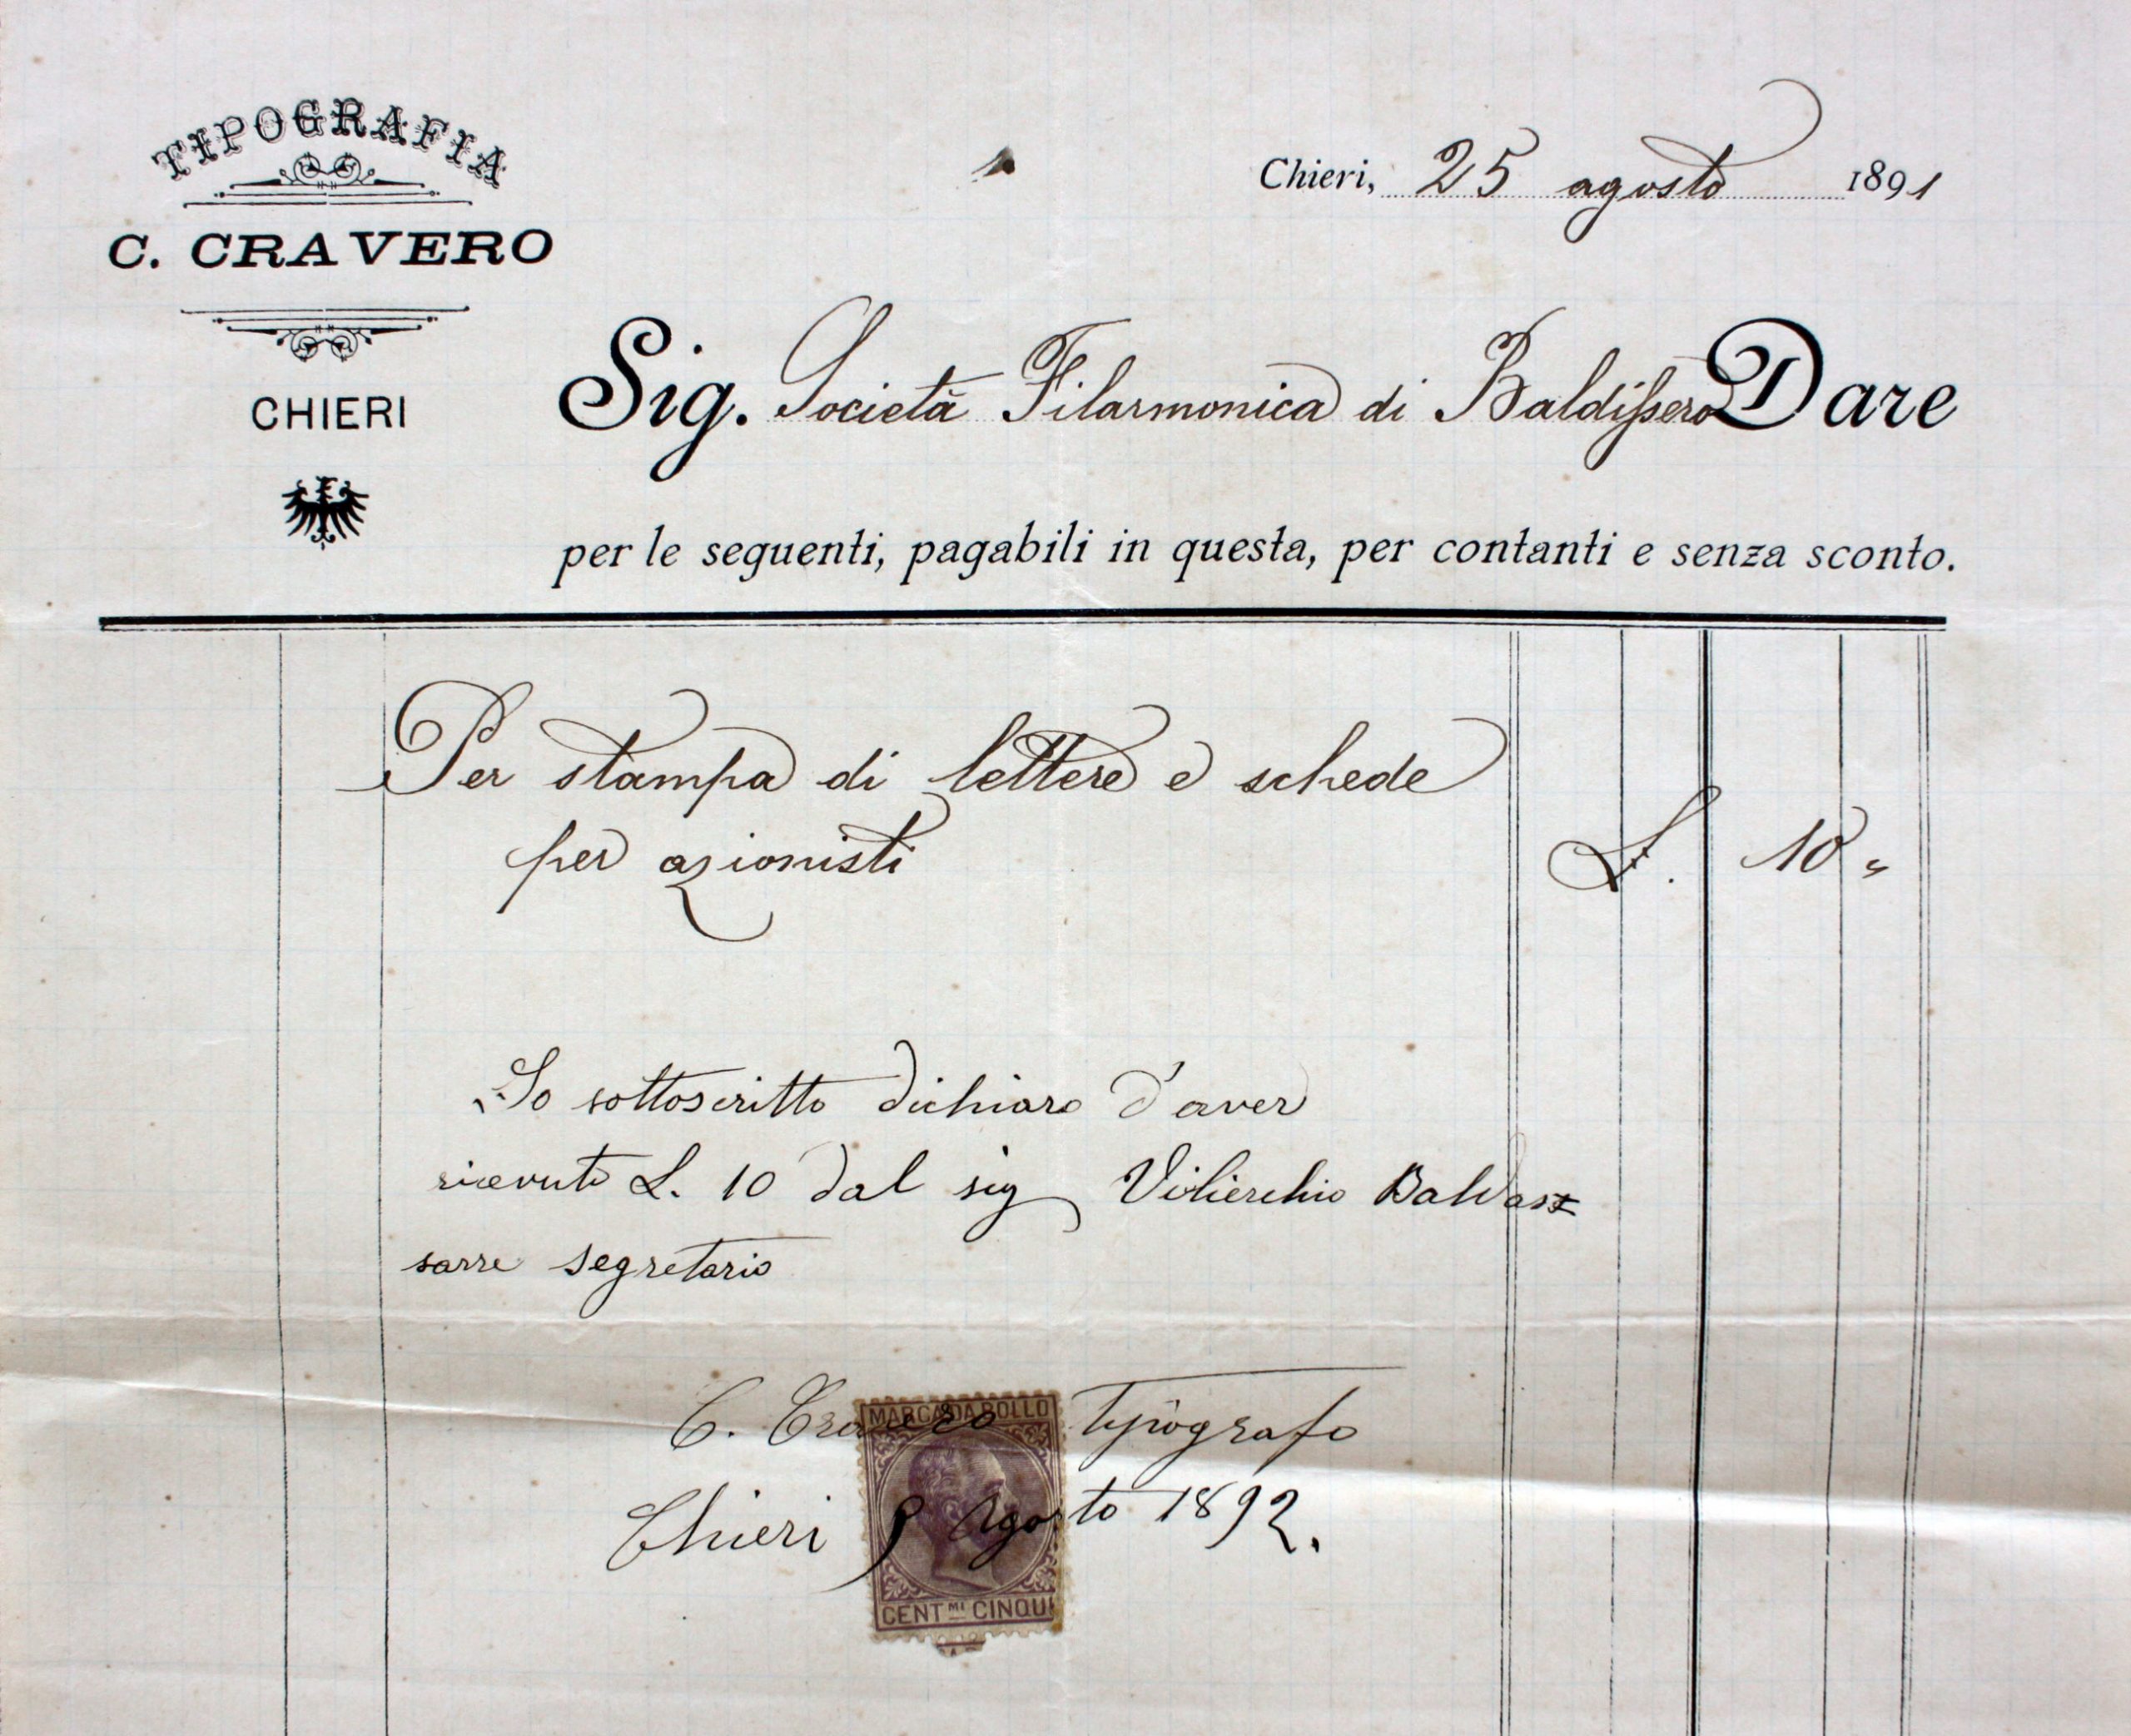 TIPOGRAFIA
C. CRAVERO
CHIERI
Chieri, 25 agosto 1891
Sig. Società Filarmonica di Baldissero Dare
per le seguenti, pagabili in questa, per contanti e senza sconto.
Per stampa di lettere e schede
per azionisti L. 10 "
Io sottoscritto dichiaro d'aver
ricevuto L. 10 dal sig Baldas=
sarre segretario
C. Cravero Tipografo
Chieri 9 Agosto 1892.
MARCA DA BOLLO
CENT MI CINQUE